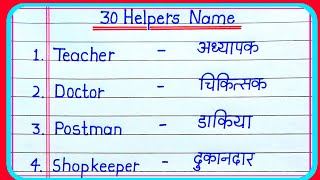 30 Helpers Name
1. Teacher - अध्यापक
2. Doctor - चिकित्सक
3. Postman - डाकिया
4. Shopkeeper - दुकानदार